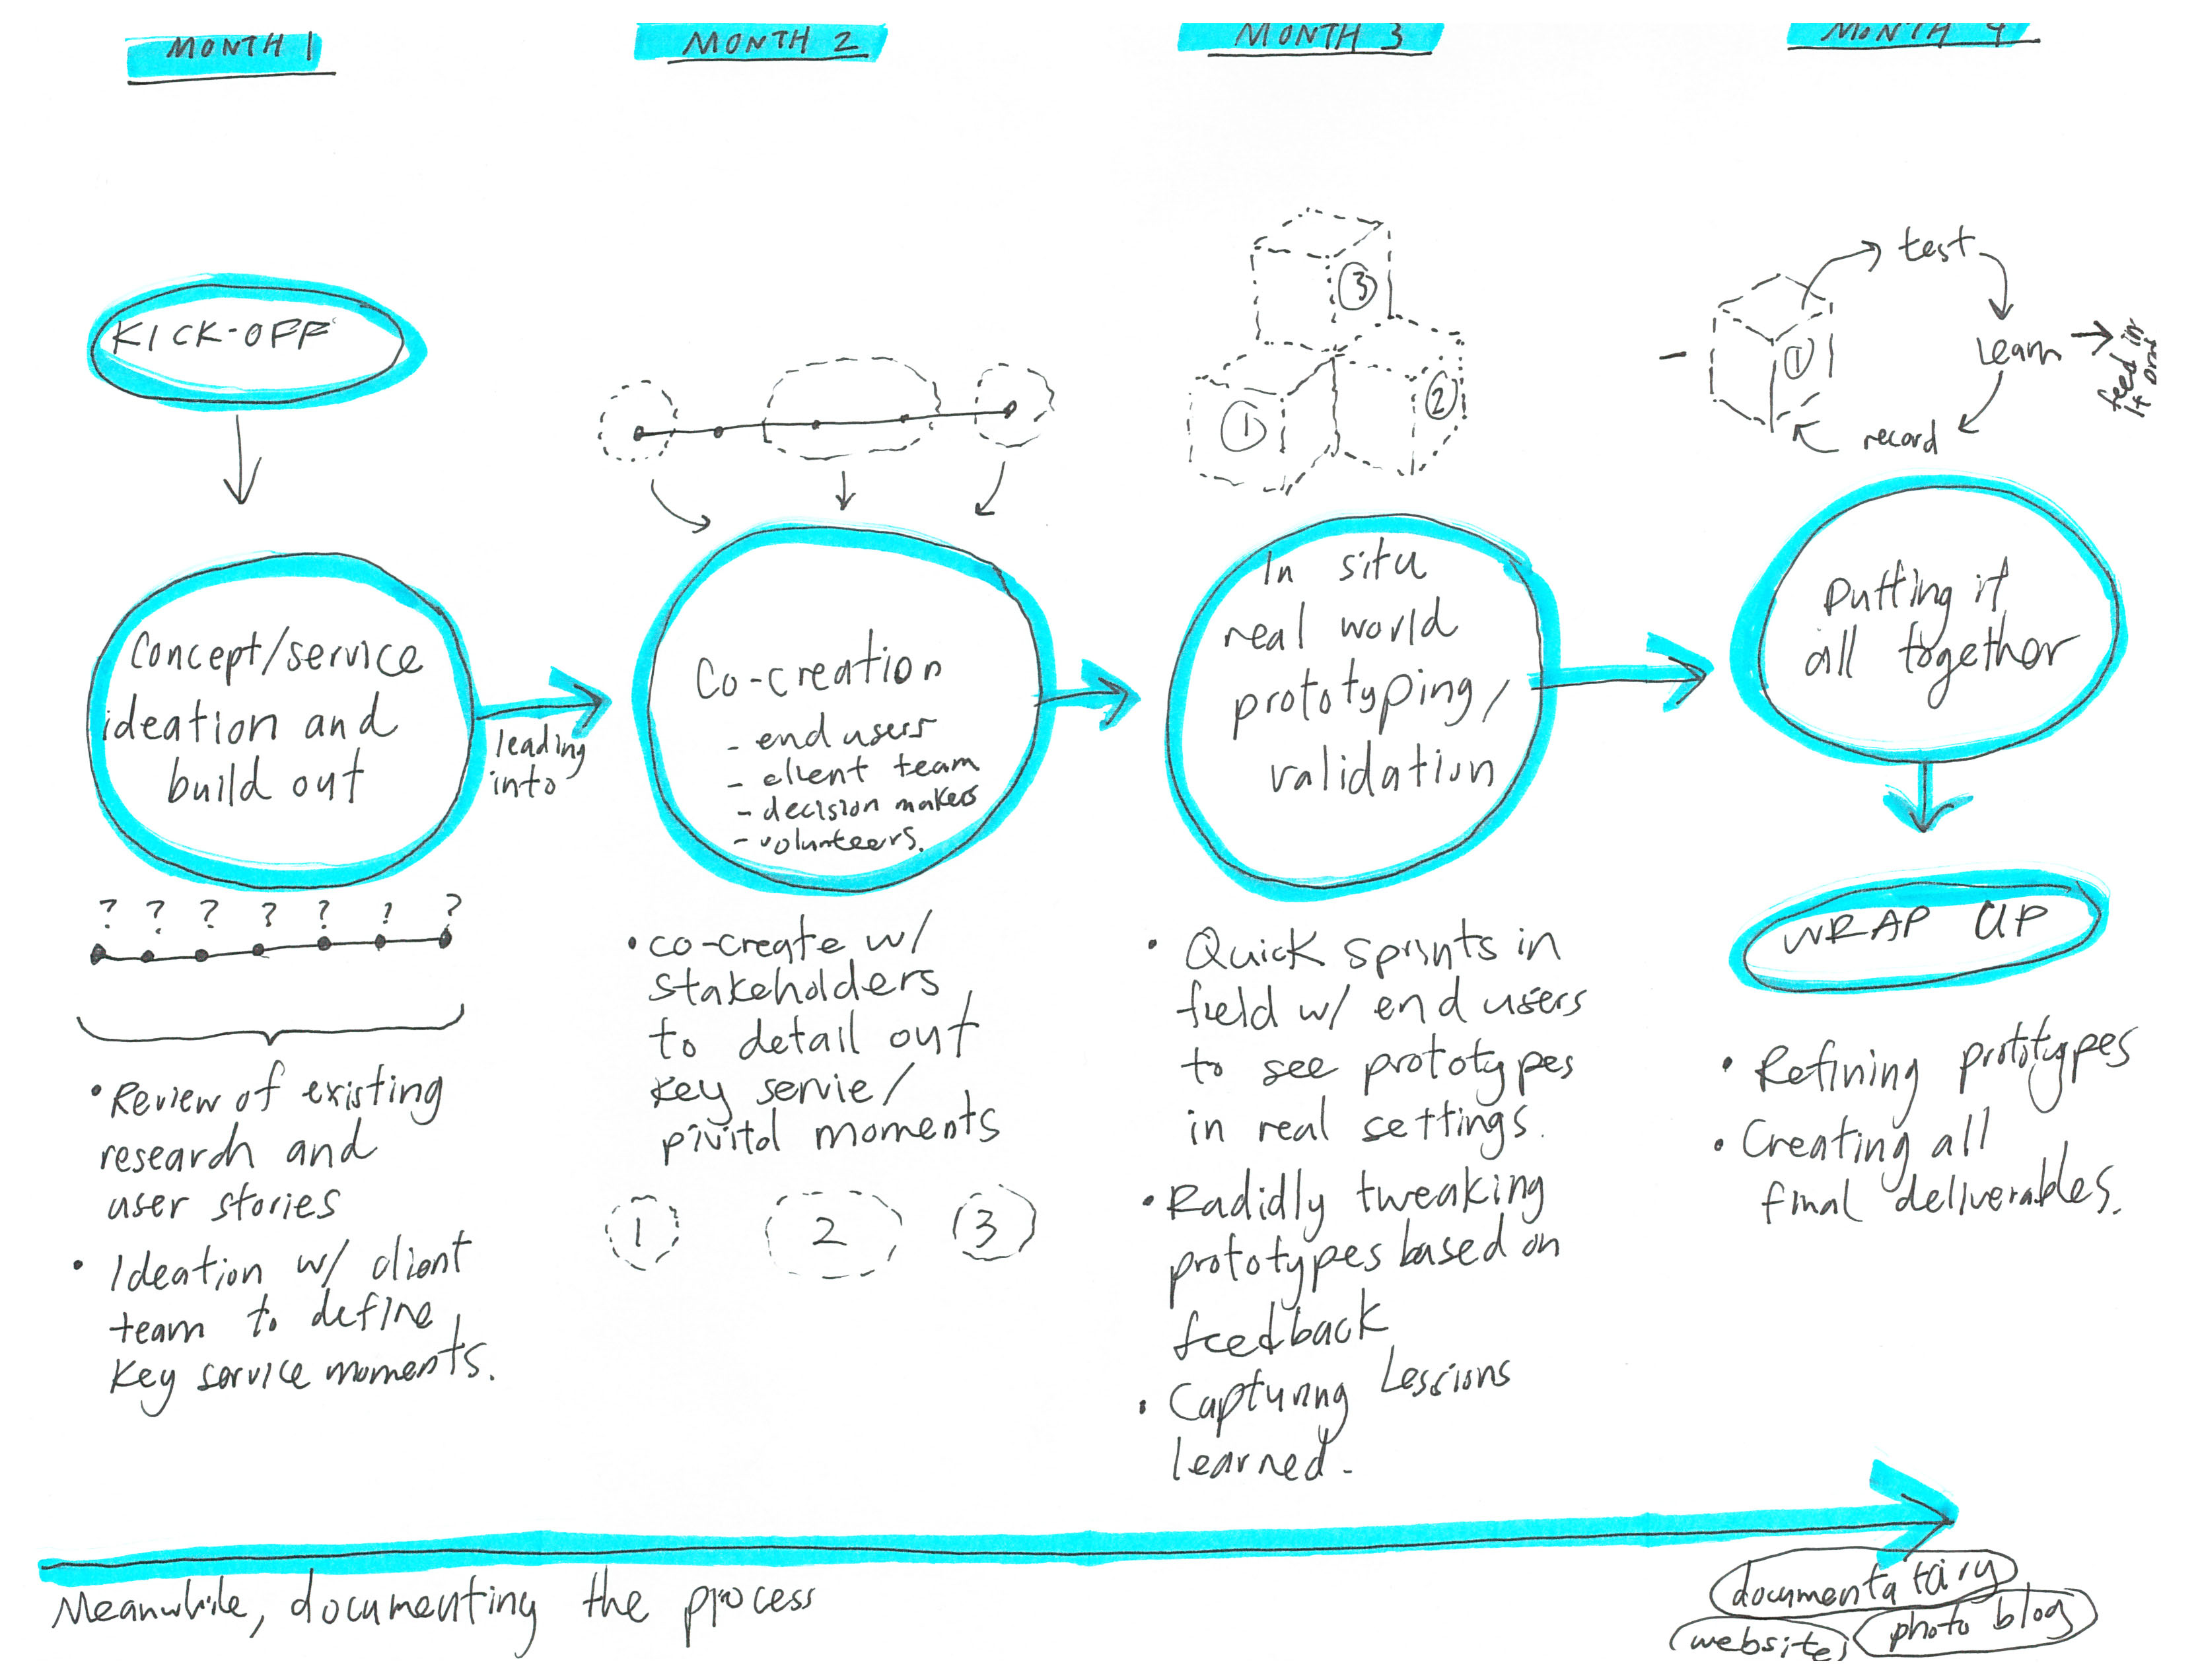 MONTH 1
MONTH 2
MONTH 3
MONTH 4
KICK-OFF
Concept/service
ideation and
build out
leading
into
? ? ? ? ? ? ?
• Review of existing
research and
user stories
• Ideation w/ client
team to define
key service moments.
Co-creation
- end users
- client team
- decision makers
- volunteers.
• co-create w/
stakeholders
to detail out
key servie/
pivitol moments
1
2
3
3
1
2
In situ
real world
prototyping/
validation
• Quick sprints in
field w/ end users
to see prototypes
in real settings.
• Radidly tweaking
prototypes based on
feedback
• Capturing Lessions
learned.
1
test
learn
record
feed in
it
Putting it
all together
WRAP UP
• Refining prototypes
• Creating all
final deliverables.
Meanwhile, documenting the process
documentatary
website
photo blog